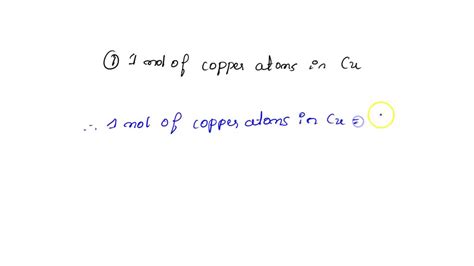 ① 1 mol of copper atoms in Cu
∴ 1 mol of copper atoms in Cu =